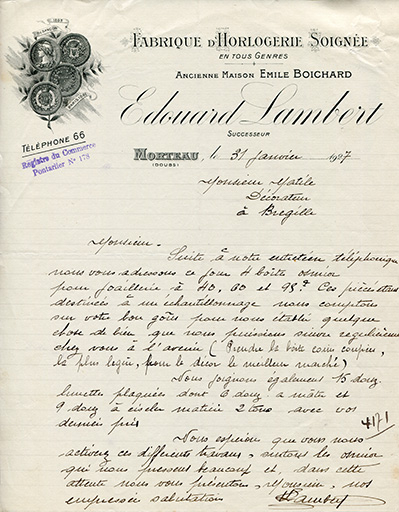 FABRIQUE D'HORLOGERIE SOIGNÉE
EN TOUS GENRES
ANCIENNE MAISON EMILE BOICHARD
Edouard Lambert
SUCCESSEUR
TÉLÉPHONE 66
Registre du Commerce
Pontarlier N° 178
MORTEAU, le 31 janvier 1927
(DOUBS)
Monsieur Matile
Décorateur
à Bregille
Monsieur.
Suite à notre entretien téléphonique
nous vous adressons ce jour 4 boîtes osmior
pour joaillerie à 40, 60 et 95. Ces pièces étant
destinées à un échantillonnage nous comptons
sur votre bon goût pour nous établir quelque
chose de bien que nous puissions suivre régulièrement
chez vous à l'avenir (Prendre la boîte coins coupés,
la plus légère, pour le décor le meilleur marché)
Nous joignons également 15 douz
lunettes plaquées dont 6 douz a mate et
9 douz à ciseler matière 2 tons avec vos
derniers prix
4171
Nous espérons que vous nous
activerez ces différents travaux, surtout les osmior
qui nous pressent beaucoup et, dans cette
attente nous vous présentons, Monsieur, nos
empressées salutations
E Lambert